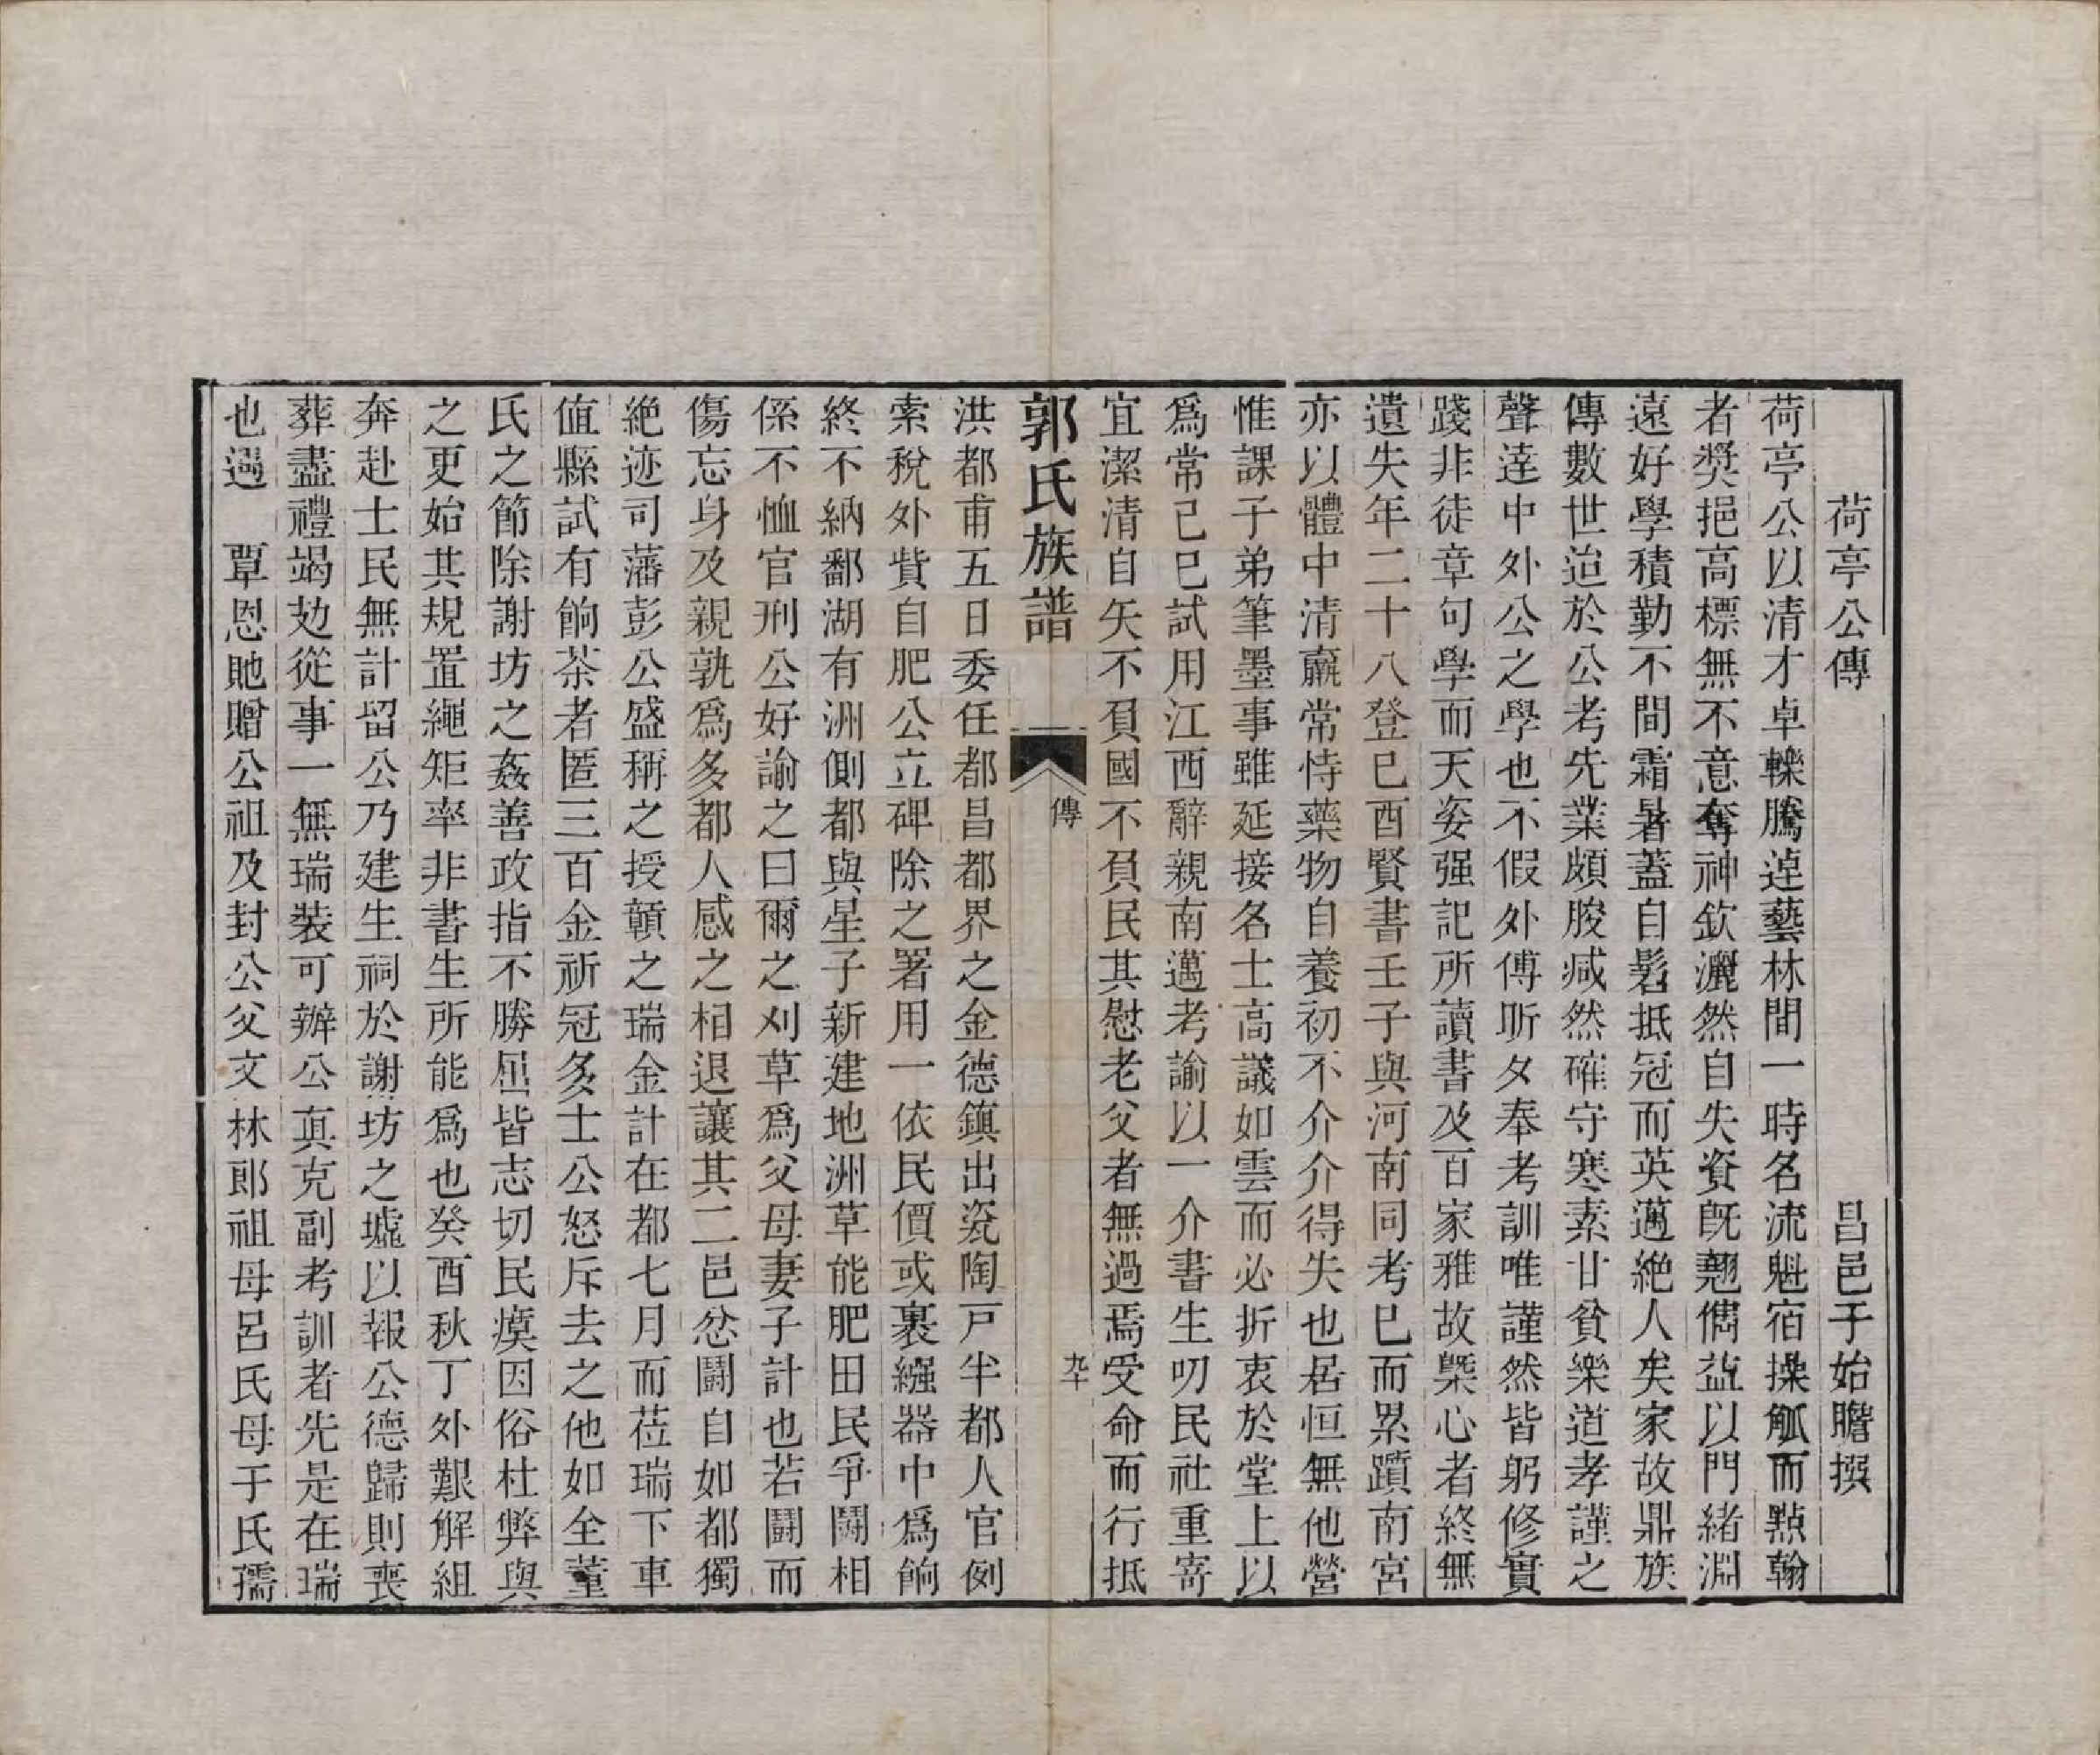 荷亭公傳　昌邑于始瞻撰
荷亭公以清才卓轢騰踔藝林間一時名流魁宿操觚而點翰
者奬挹高標無不意奪神欽灑然自失資旣翹儁益以門緒淵
遠好學積勤不間霜暑蓋自髫抵冠而英邁絶人矣家故鼎族
傳數世迨於公考先業頗朘减然確守寒素甘貧樂道孝謹之
聲逹中外公之學也不假外傅昕夕奉考訓唯謹然皆躬修實
踐非徒章句學而天姿强記所讀書及百家雅故槩心者終無
遺失年二十八登己酉賢書壬子與河南同考已而累躓南宮
亦以體中清羸常恃藥物自養初不介介得失也居恒無他營
惟課子弟筆墨事雖延接名士高議如雲而必折衷於堂上以
爲常己巳試用江西辭親南邁考諭以一介書生叨民社重寄
宜潔清自矢不負國不負民其慰老父者無過焉受命而行抵
郭氏族譜　傳　九十
洪都甫五日委任都昌都界之金德鎮出瓷陶戸半都人官例
索稅外貲自肥公立碑除之署用一依民價或裹繦器中爲餉
終不納鄱湖有洲側都與星子新建地洲草能肥田民爭鬪相
係不恤官刑公好諭之曰爾之刈草爲父母妻子計也若鬪而
傷忘身及親孰爲多都人感之相退讓其二邑忿鬪自如都獨
絶迹司藩彭公盛稱之授贑之瑞金計在都七月而莅瑞下車
値縣試有餉茶者匿三百金祈冠多士公怒斥去之他如全董
氏之節除謝坊之姦善政指不勝屈皆志切民瘼因俗杜弊與
之更始其規置繩矩率非書生所能爲也癸酉秋丁外艱解組
奔赴士民無計留公乃建生祠於謝坊之墟以報公德歸則喪
葬盡禮竭攰從事一無瑞裝可辦公眞克副考訓者先是在瑞
也遇　覃恩貤贈公祖及封公父文林郎祖母呂氏母于氏孺